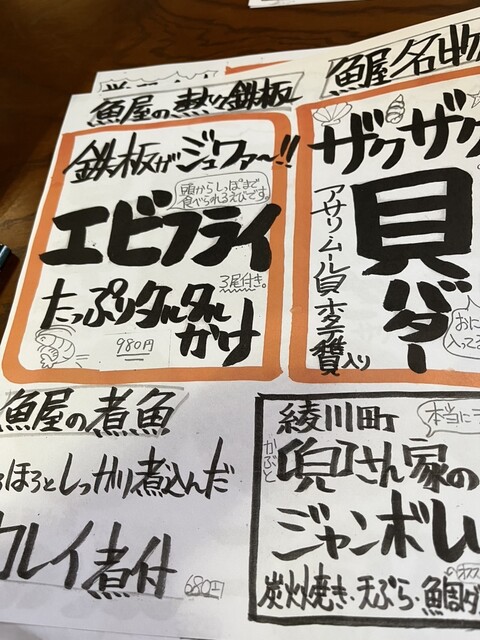 魚屋の熱々鉄板
鉄板がジュワァ〜!!
頭からしっぽまで
食べられるえびです。
エビフライ
3尾付き。
たっぷりタルタル
かけ
980円
魚屋の煮魚
ほろとしっかり煮込んだ
カレイ煮付
680円
魚屋名物
ザクザク
貝バター
アサリ・ムール貝・
入り
おに
入ってる
綾川町
本当に
かぶと
さん家の
ジャンボ
炭火焼き・天ぷら・鯛